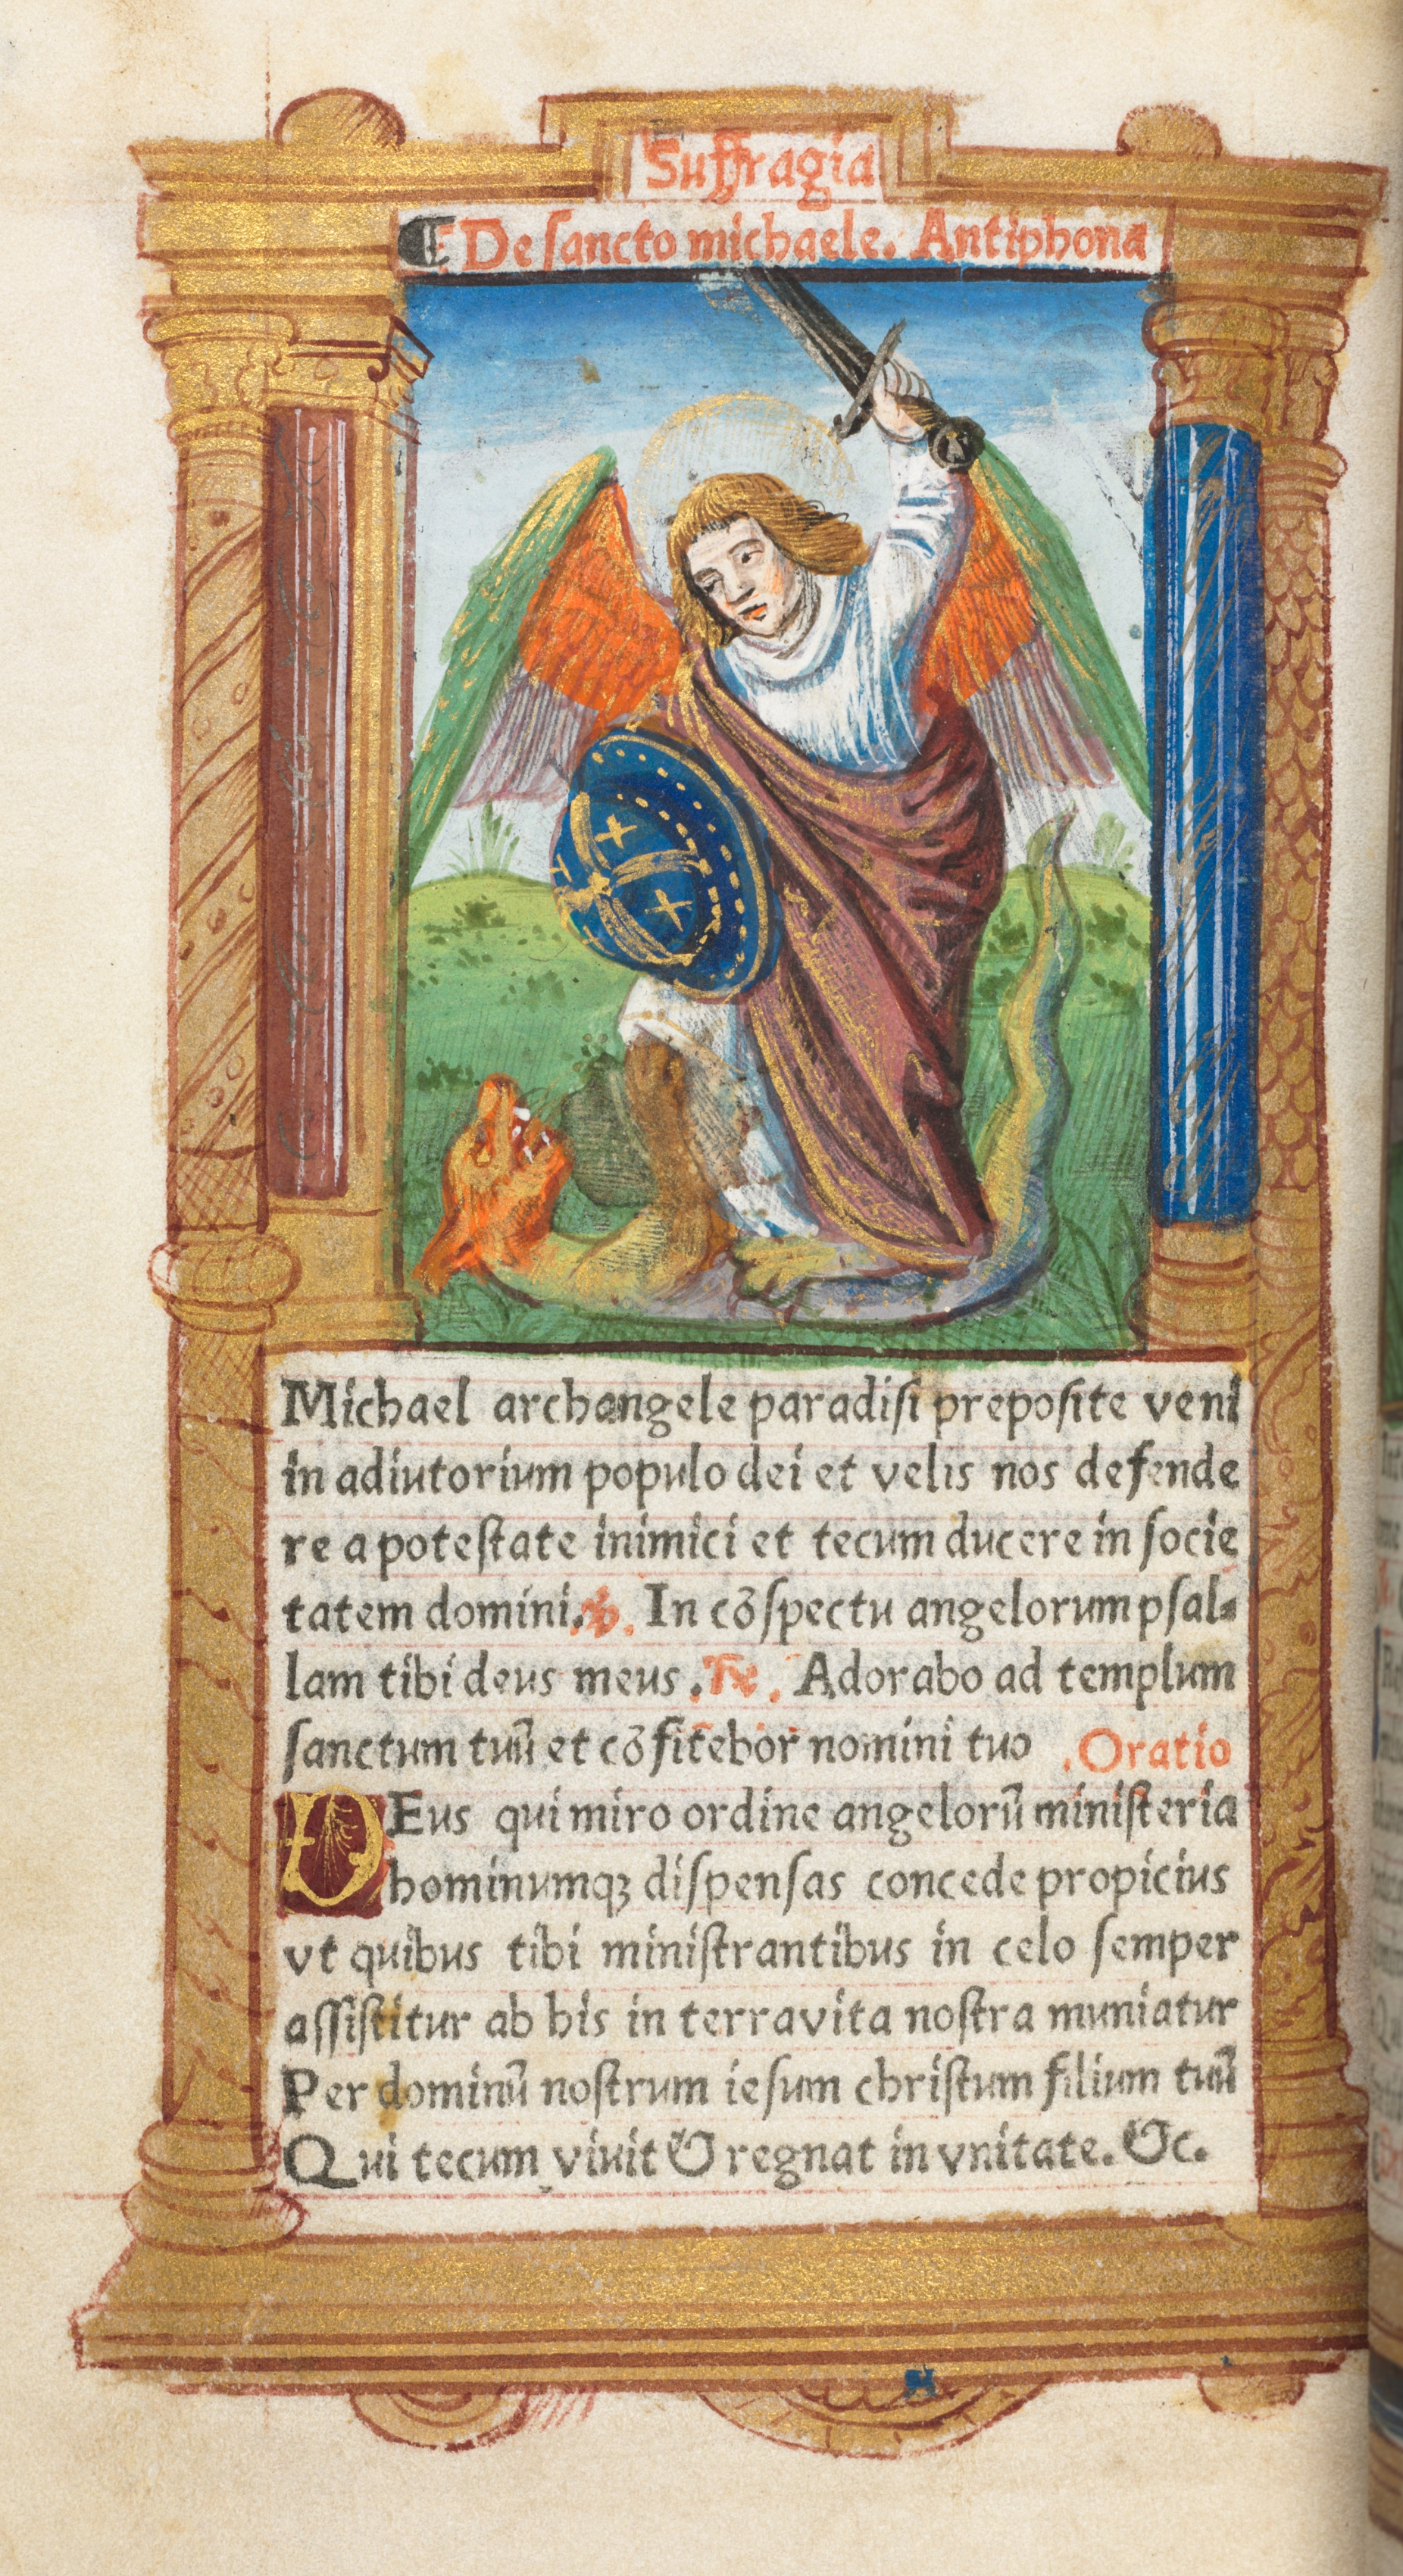 Suffragia
¶ De ſancto michaele. Antiphona
Michael archangele paradiſi prepoſite veni
in adiutorium populo dei et velis nos defende
re a poteſtate inimici et tecum ducere in ſocie
tatem domini. ℣. In cōſpectu angelorum pſal-
lam tibi deus meus. ℟. Adorabo ad templum
ſanctum tuū et cōfitebor nomini tuo .Oratio
DEus qui miro ordine angelorū miniſteria
hominumqꝫ diſpenſas concede propicius
vt quibus tibi miniſtrantibus in celo ſemper
aſſiſtitur ab his in terra vita noſtra muniatur
Per dominū noſtrum ieſum chriſtum filium tuū
Qui tecum viuit & regnat in vnitate. &c.